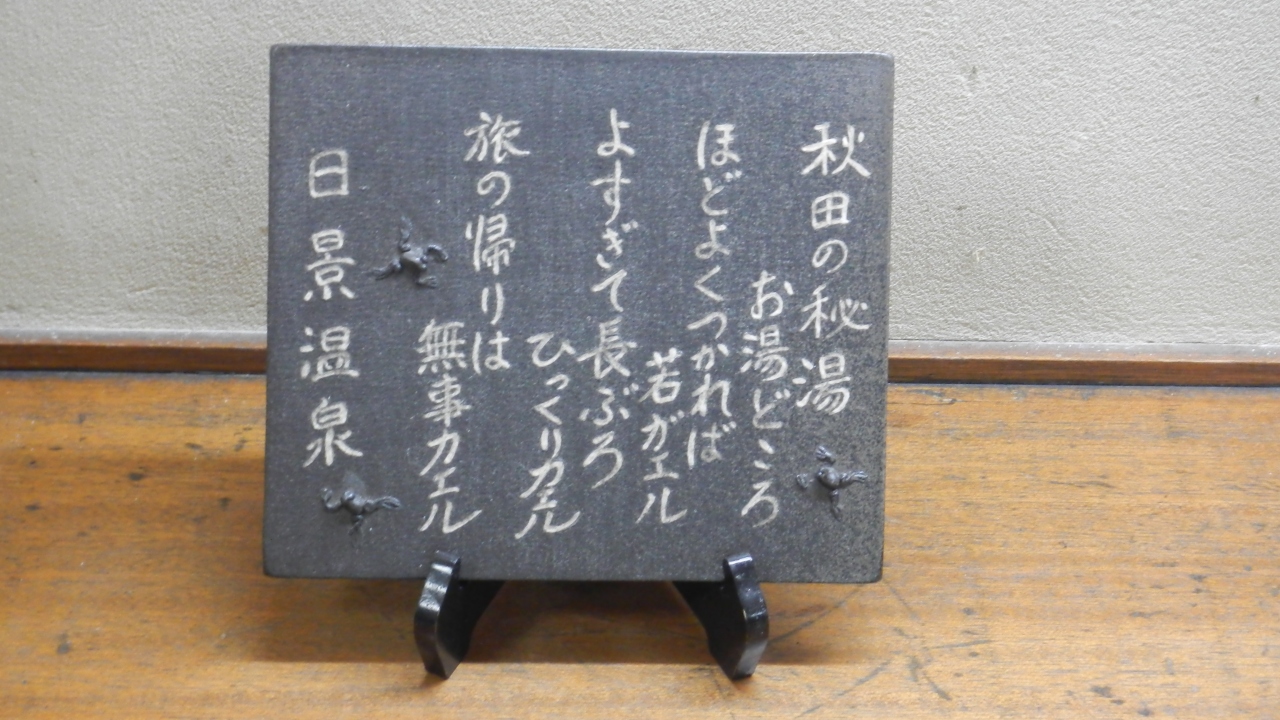 秋田の秘湯
お湯どころ
ほどよくつかれば
若ガエル
よすぎて長ぶろ
ひっくりカエル
旅の帰りは
無事カエル
日景温泉